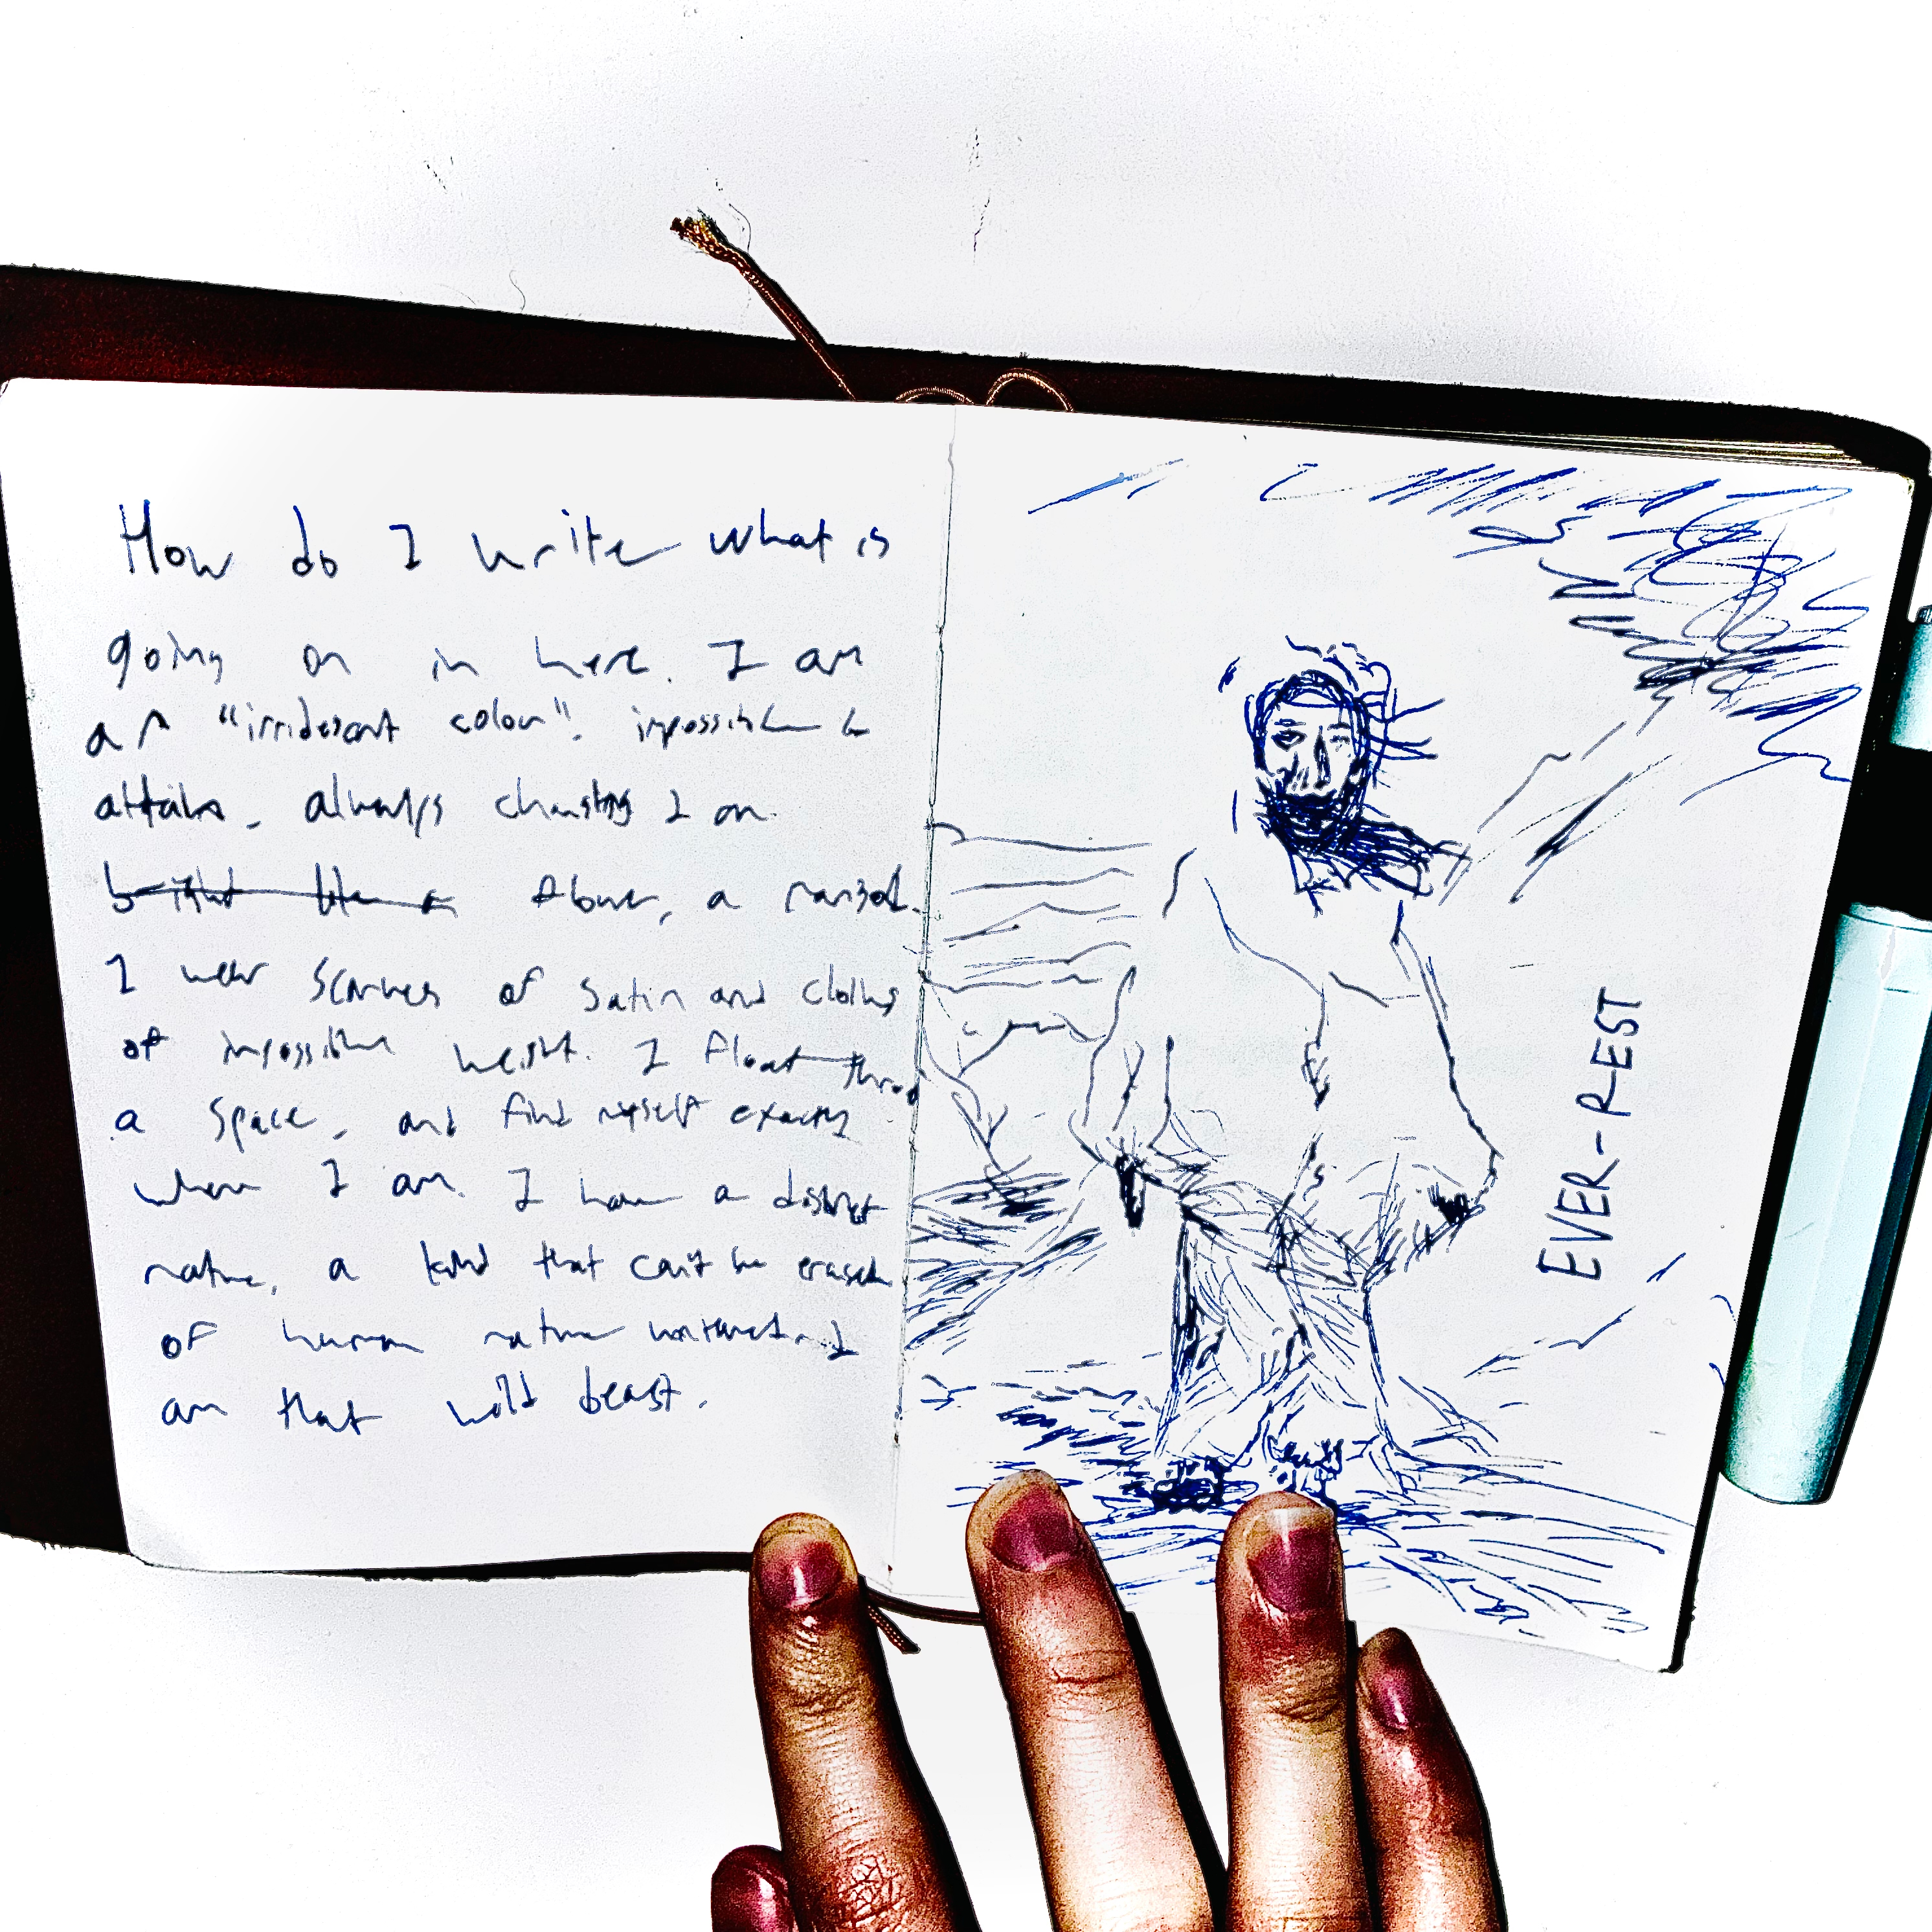 How do I write what is
going on in here. I am
an "irridescant colour". impossible to
attain, always changing I am
bright like a Above, a
I wear scarves of satin and cloths
of impossible weight. I float throu
a space, and find myself exactly
where I am. I have a distinct
nature, a kind that can't be erased
of human nature I
am that wild beast.
EVER-REST